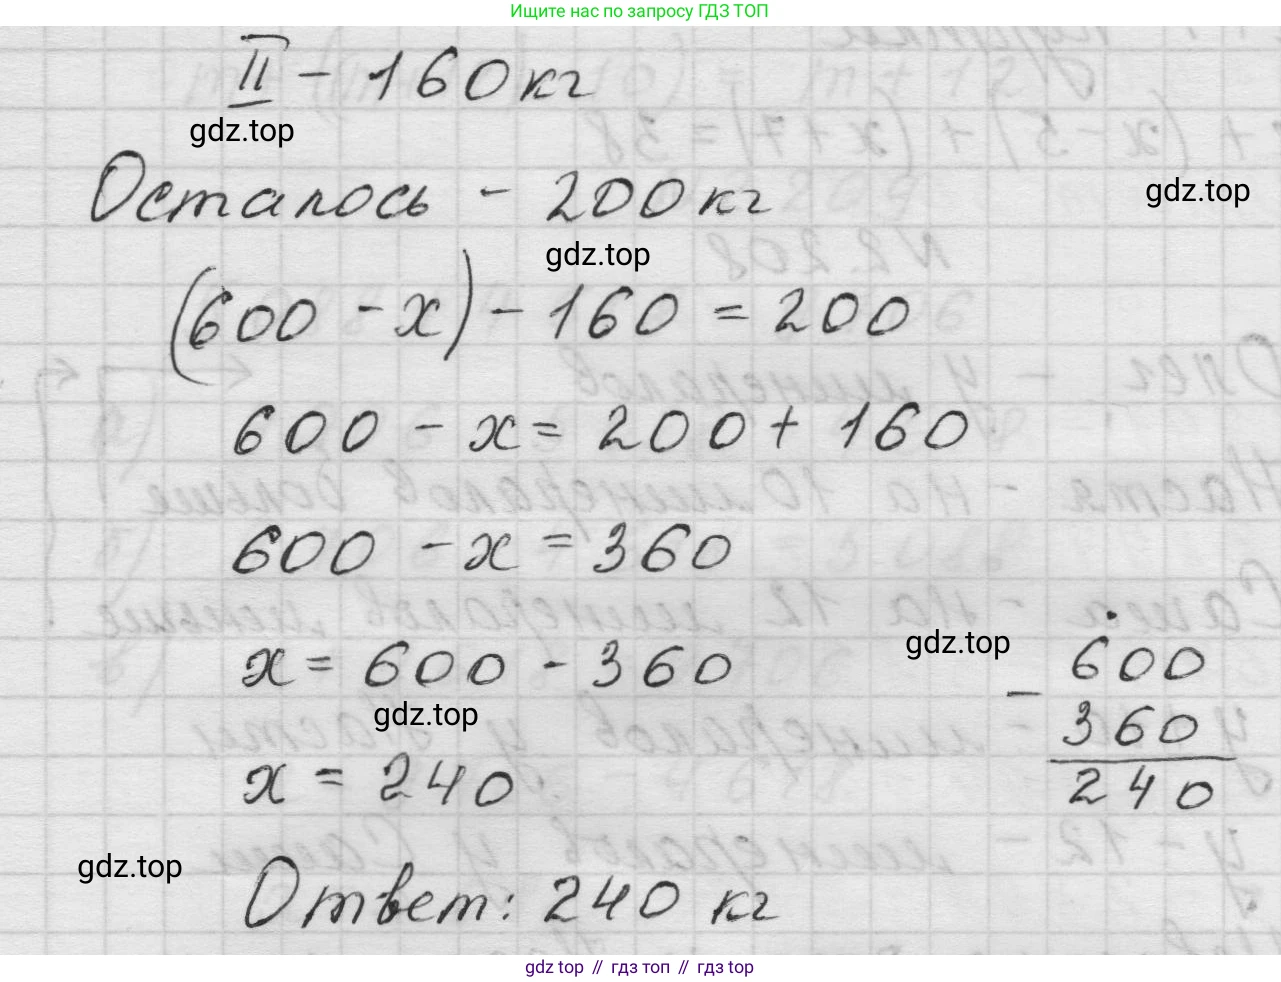 Ищите нас по запросу ГДЗ ТОП
II - 160 кг
gdz.top
Осталось - 200 кг
gdz.top
gdz.top
(600 - x) - 160 = 200
600 - x = 200 + 160
600 - x = 360
x = 600 - 360
gdz.top
gdz.top
x = 240
600
- 360
240
gdz.top
Ответ: 240 кг
gdz top // гдз топ // гдз top